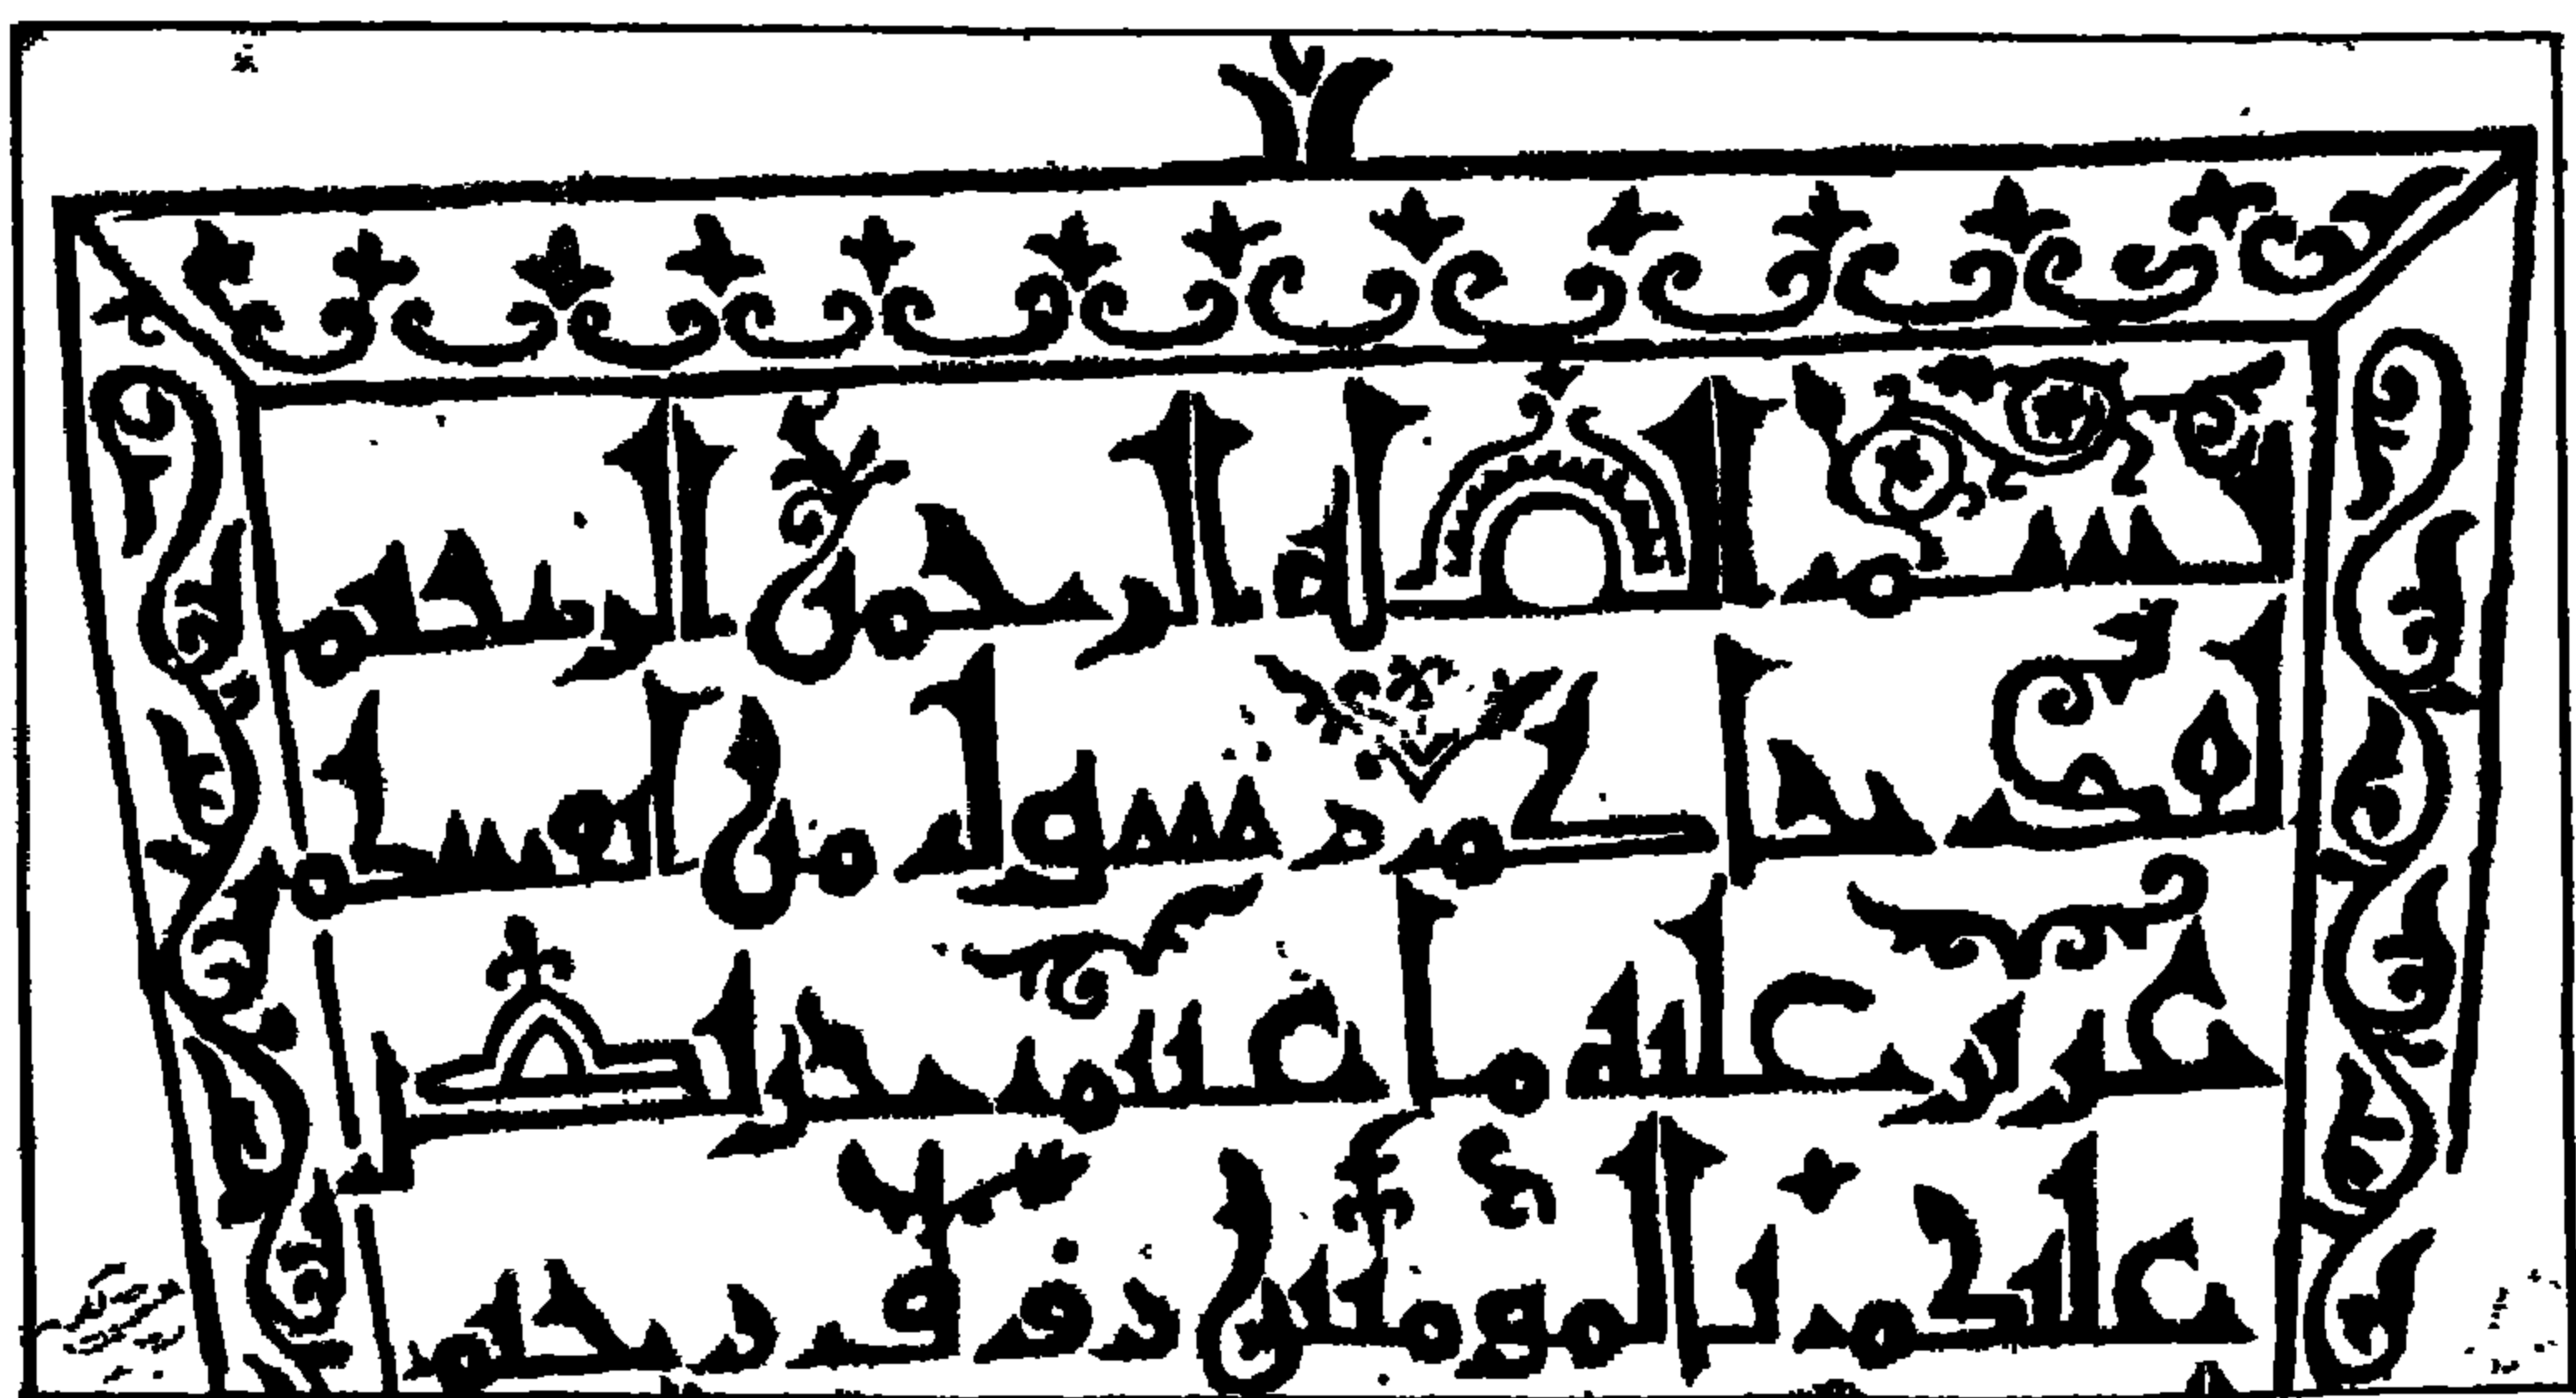 بسم الله الرحمن الرحيم
لقد جاءكم رسول من أنفسكم
عزيز عليه ما عنتم حريص
عليكم بالمؤمنين رؤوف رحيم